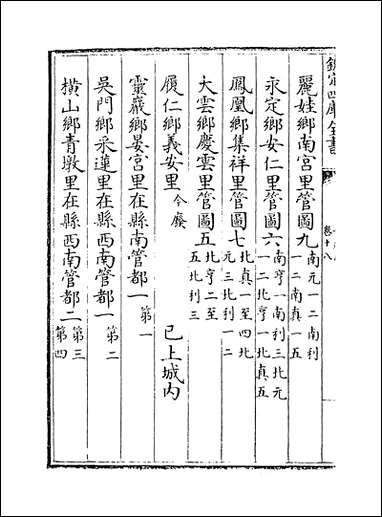 欽定四庫全書
卷十八
麗娃鄉南宮里管圖九 南元一二南利一二南真一五
永定鄉安仁里管圖六 南亨一南利三北元一二北亨一北真五
鳳凰鄉集祥里管圖七 北真一至四北元三北利一二
大雲鄉慶雲里管圖五 北亨二至五北利三
履仁鄉義安里 今廢 已上城内
靈巖鄉晏宮里在縣南管都一 第一
吳門鄉采蓮里在縣西南管都一 第二
橫山鄉青墩里在縣西南管都二 第三第四